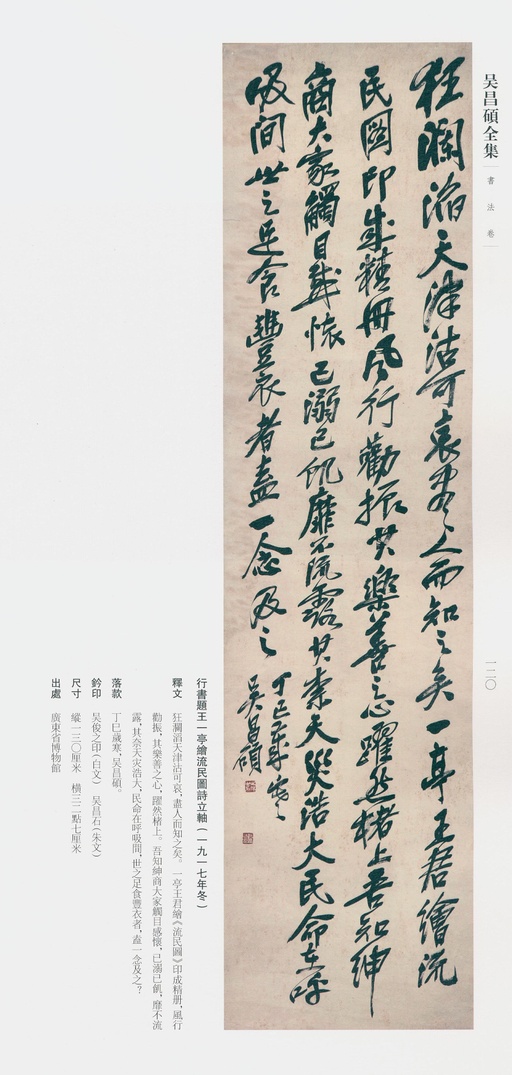 吴昌碩全集
書法卷
一二〇
狂瀾滔天津沽可哀盡人而知之矣一亭王君繪流
民圖印成精冊風行勸振其樂善之心躍然楮上吾知紳
商大家觸目感懷已溺已飢靡不流露其柰天災浩大民命在呼
吸間世之足食豐衣者盍一念及之
丁巳歲寒
吴昌碩
行書題王一亭繪流民圖詩立軸（一九一七年冬）
釋文 狂瀾滔天津沽可哀，盡人而知之矣。一亭王君繪《流民圖》印成精册，風行
勸振，其樂善之心，躍然楮上。吾知紳商大家觸目感懷，已溺已飢，靡不流
露，其奈天灾浩大，民命在呼吸間，世之足食豐衣者，盍一念及之？
落款 丁巳歲寒，吴昌碩。
鈐印 吴俊之印（白文） 吴昌石（朱文）
尺寸 縱一三〇厘米 橫三二點七厘米
出處 廣東省博物館